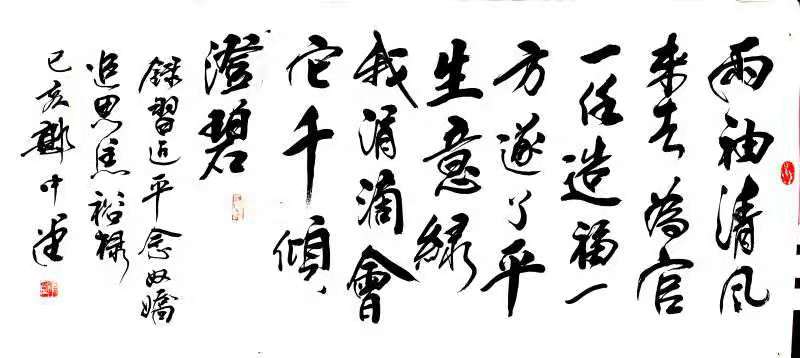 兩袖清风
来去為官
一任造福一
方遂了平
生意绿
我涓滴會
它千傾
澄碧
錄習近平念奴嬌
追思焦裕祿
己亥鄭中